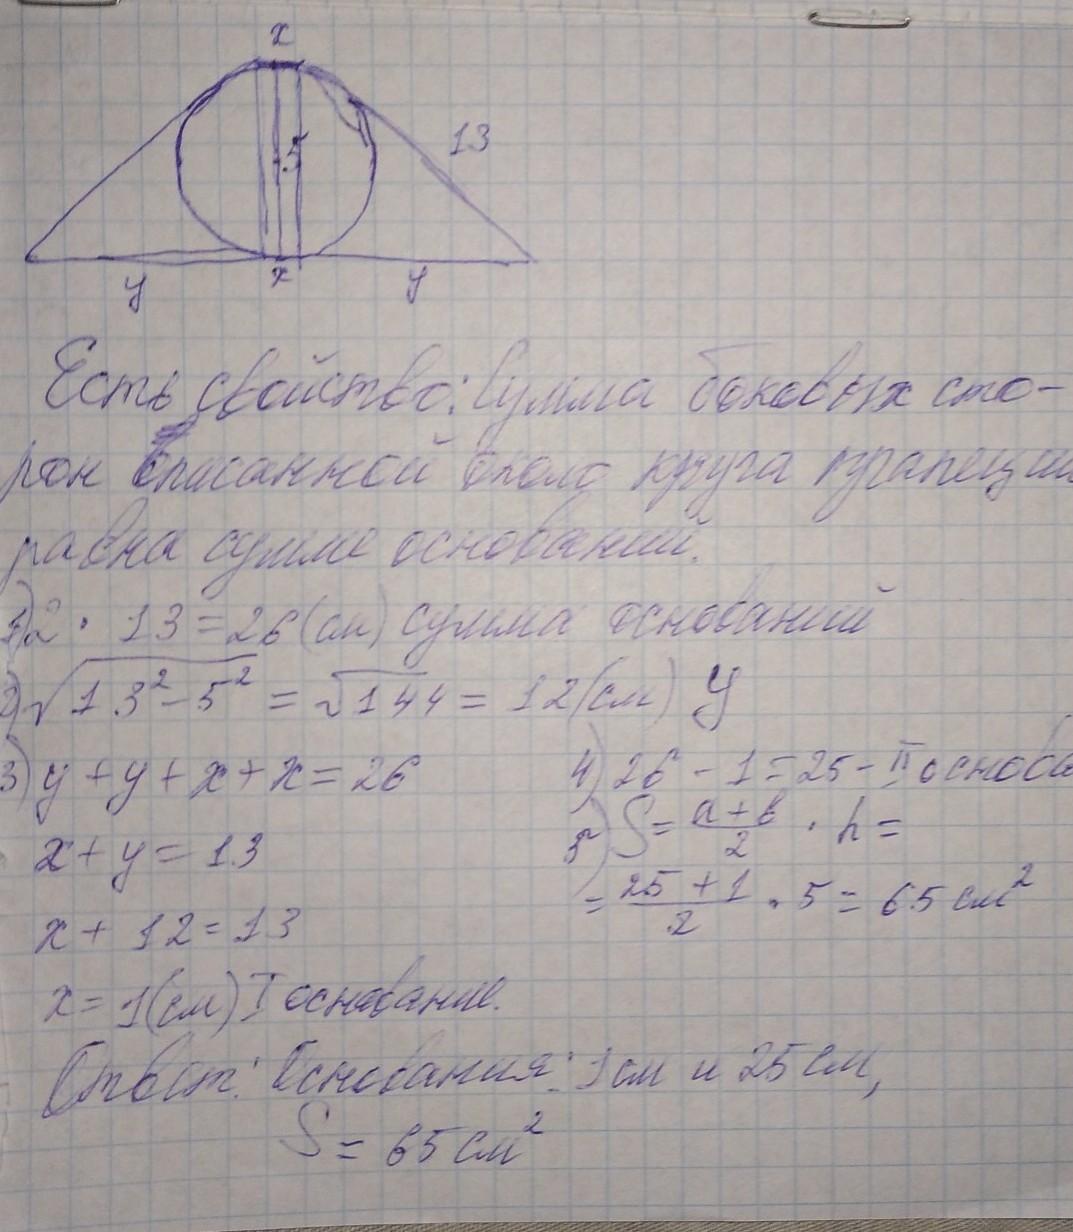 x
13
5
y
x
y
Есть свойство: Сумма боковых сто-
рон описанной около круга трапеции
равна сумме оснований.
1) 2 · 13 = 26 (см) сумма оснований
2) √13² - 5² = √144 = 12 (см) y
3) y + y + x + x = 26
x + y = 13
x + 12 = 13
x = 1 (см) I основание.
4) 26 - 1 = 25 - II основа
5) S = a + b / 2 · h =
= 25 + 1 / 2 · 5 = 65 см²
Ответ: Основания: 1 см и 25 см,
S = 65 см²